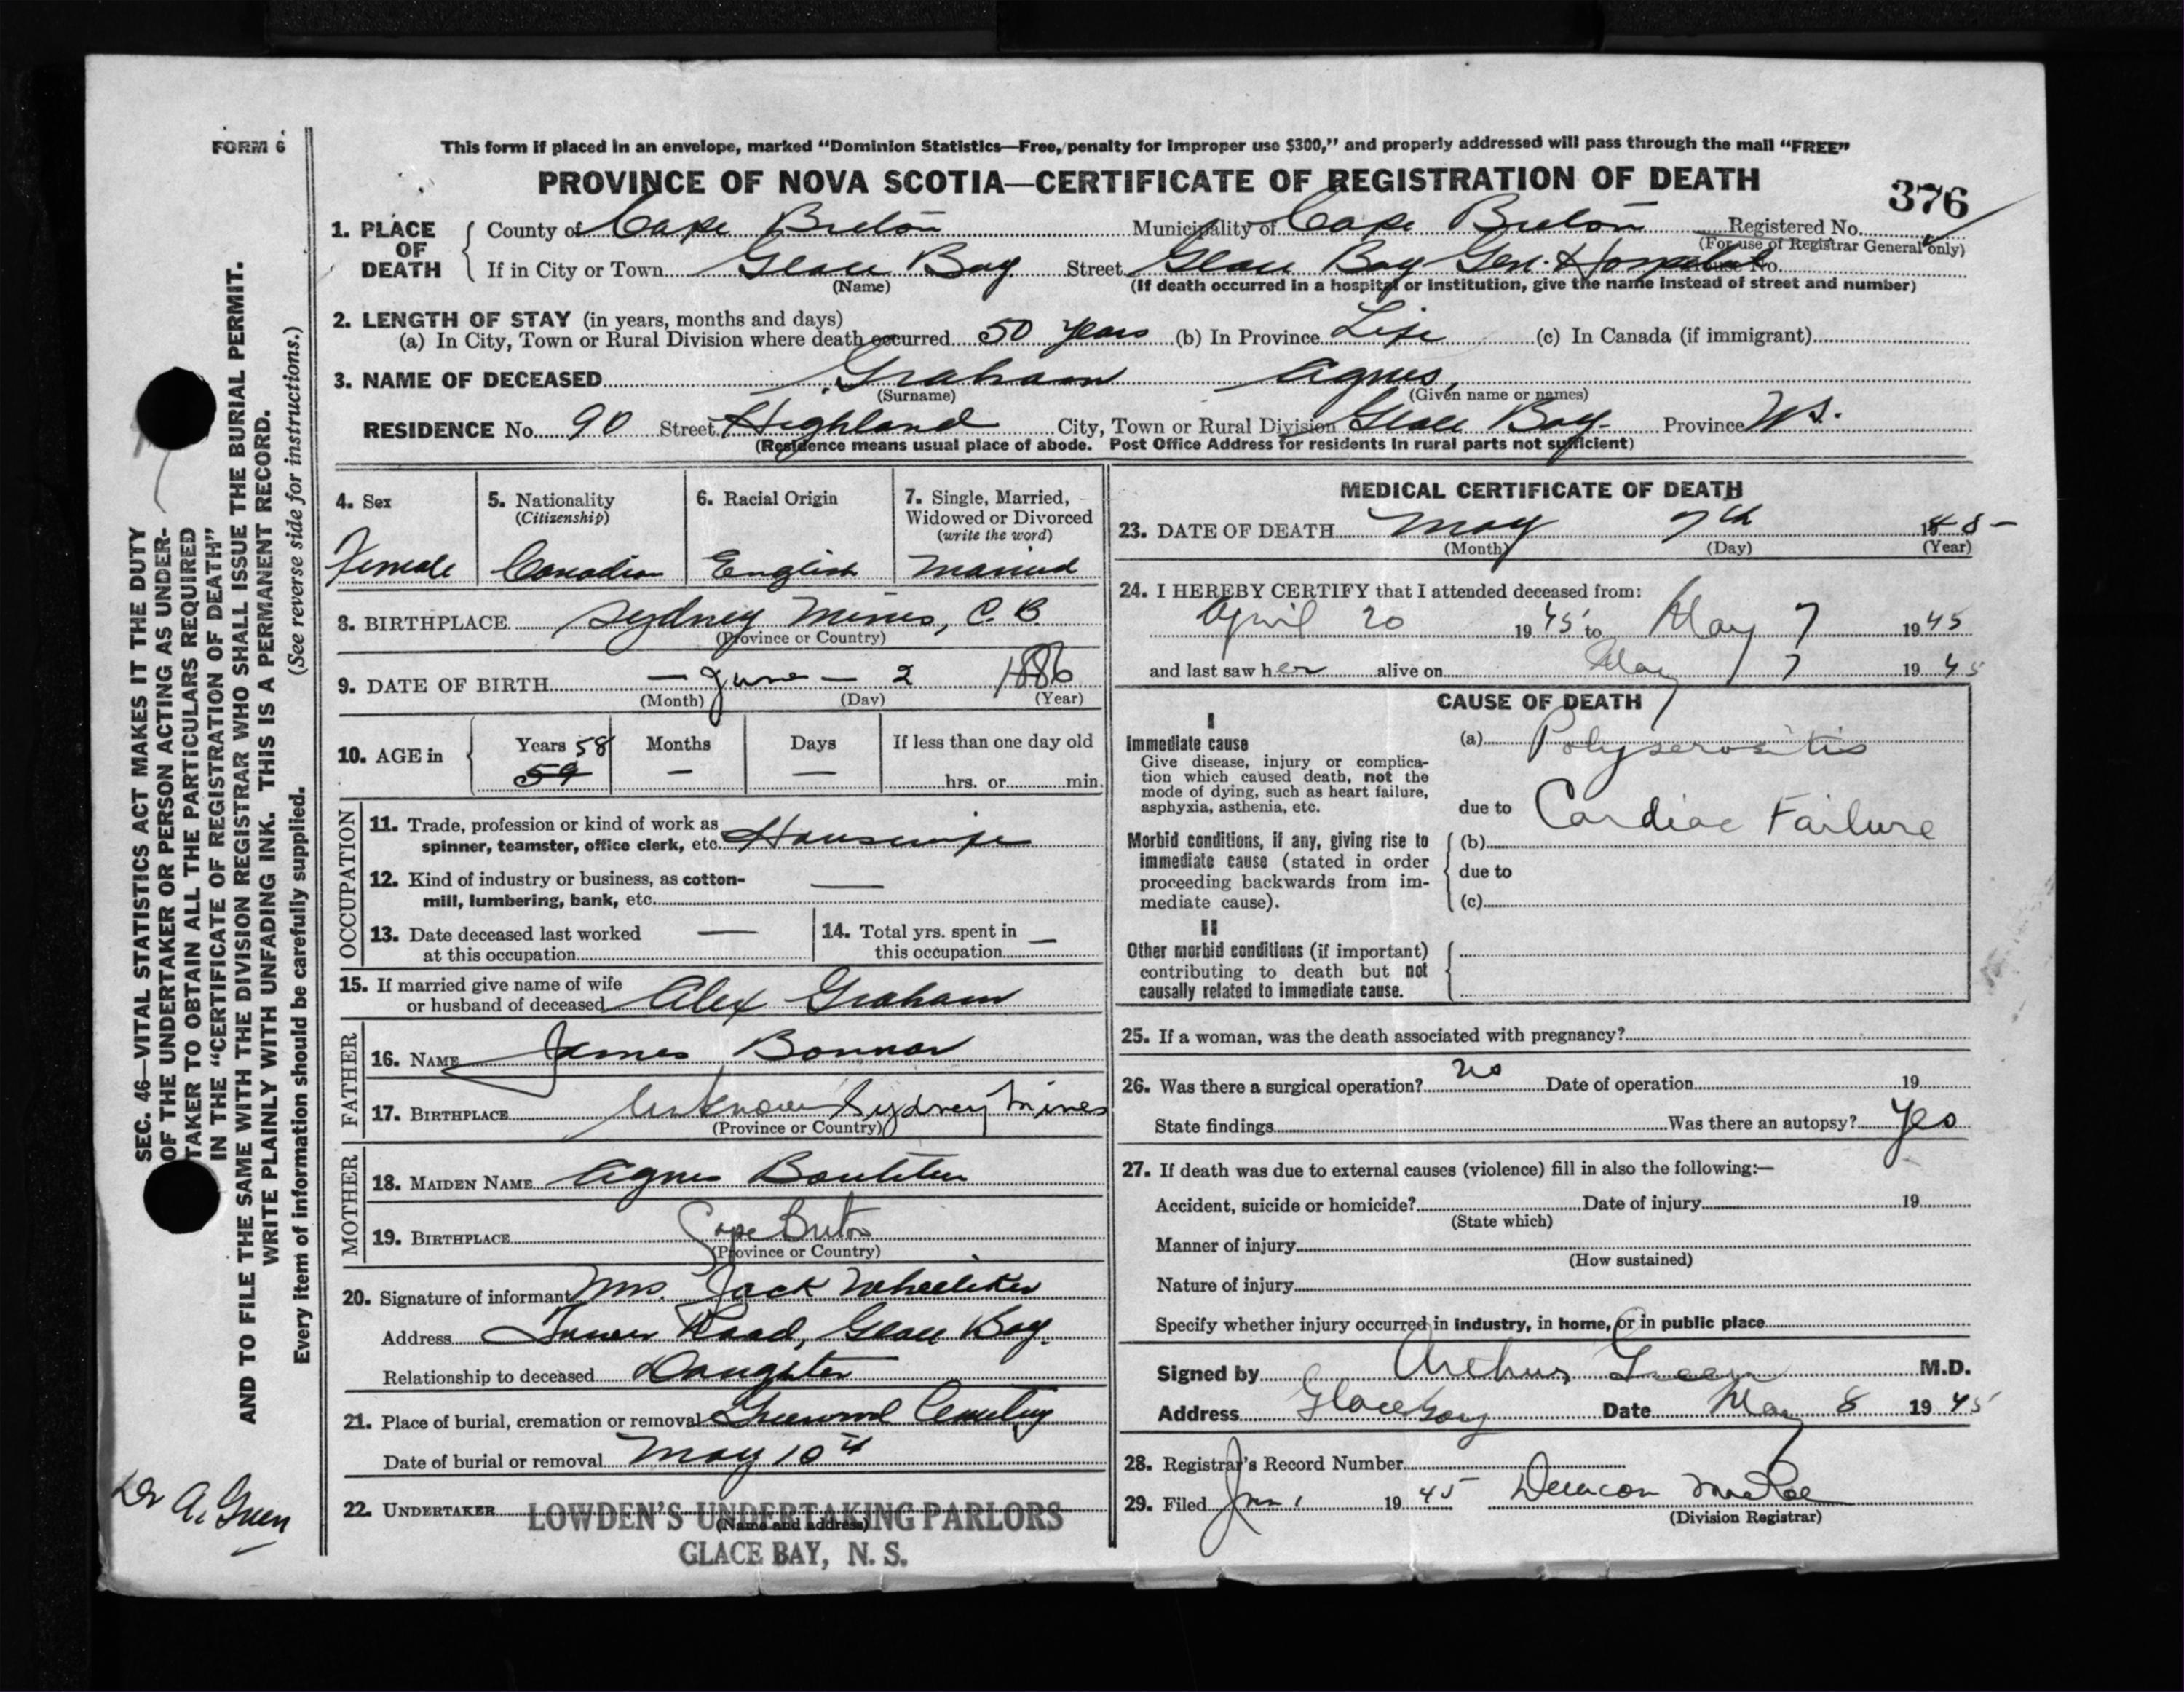 FORM 6
This form if placed in an envelope, marked "Dominion Statistics—Free, penalty for improper use $300," and properly addressed will pass through the mail "FREE"
PROVINCE OF NOVA SCOTIA—CERTIFICATE OF REGISTRATION OF DEATH
376
1. PLACE OF DEATH
County of Cape Breton Municipality of Cape Breton Registered No.
(For use of Registrar General only)
If in City or Town Glace Bay Street Glace Bay Gen. Hospital House No.
(Name) (If death occurred in a hospital or institution, give the name instead of street and number)
2. LENGTH OF STAY (in years, months and days)
(a) In City, Town or Rural Division where death occurred 50 years (b) In Province Life (c) In Canada (if immigrant)
3. NAME OF DECEASED Graham Agnes,
(Surname) (Given name or names)
RESIDENCE No. 90 Street Highland City, Town or Rural Division Glace Bay. Province N.S.
(Residence means usual place of abode. Post Office Address for residents in rural parts not sufficient)
4. Sex
Female
5. Nationality
(Citizenship)
Canadian
6. Racial Origin
English
7. Single, Married,
Widowed or Divorced
(write the word)
Married
8. BIRTHPLACE Sydney Mines, C.B.
(Province or Country)
9. DATE OF BIRTH — June — 2 1886
(Month) (Day) (Year)
10. AGE in
Years 58 Months Days If less than one day old
59 — — hrs. or min.
OCCUPATION
11. Trade, profession or kind of work as
spinner, teamster, office clerk, etc. Housewife
12. Kind of industry or business, as cotton-
mill, lumbering, bank, etc. —
13. Date deceased last worked —
at this occupation
14. Total yrs. spent in —
this occupation
15. If married give name of wife
or husband of deceased Alex Graham
FATHER
16. NAME James Bonnar
17. BIRTHPLACE Unknown Sydney Mines
(Province or Country)
MOTHER
18. MAIDEN NAME Agnes
19. BIRTHPLACE Cape Breton
(Province or Country)
20. Signature of informant Mrs. Jack
Address Road, Glace Bay.
Relationship to deceased Daughter
21. Place of burial, cremation or removal Greenwood Cemetery
Date of burial or removal May 10th
22. UNDERTAKER LOWDEN'S UNDERTAKING PARLORS
(Name and address)
GLACE BAY, N. S.
MEDICAL CERTIFICATE OF DEATH
23. DATE OF DEATH May 7th 45
(Month) (Day) (Year)
24. I HEREBY CERTIFY that I attended deceased from:
April 20 1945 to May 7 1945
and last saw her alive on May 7 1945
CAUSE OF DEATH
I
Immediate cause
Give disease, injury or complica-
tion which caused death, not the
mode of dying, such as heart failure,
asphyxia, asthenia, etc.
(a) Polyserositis
due to Cardiac Failure
Morbid conditions, if any, giving rise to
immediate cause (stated in order
proceeding backwards from im-
mediate cause).
(b)
due to
(c)
II
Other morbid conditions (if important)
contributing to death but not
causally related to immediate cause.
25. If a woman, was the death associated with pregnancy?
26. Was there a surgical operation? no Date of operation 19
State findings Was there an autopsy? Yes
27. If death was due to external causes (violence) fill in also the following:—
Accident, suicide or homicide? Date of injury 19
(State which)
Manner of injury
(How sustained)
Nature of injury
Specify whether injury occurred in industry, in home, or in public place
Signed by Arthur Green M.D.
Address Glace Bay Date May 8 1945
28. Registrar's Record Number
29. Filed Jun 1 1945 Duncan McRae
(Division Registrar)
SEC. 46—VITAL STATISTICS ACT MAKES IT THE DUTY
OF THE UNDERTAKER OR PERSON ACTING AS UNDER-
TAKER TO OBTAIN ALL THE PARTICULARS REQUIRED
IN THE "CERTIFICATE OF REGISTRATION OF DEATH"
AND TO FILE THE SAME WITH THE DIVISION REGISTRAR WHO SHALL ISSUE THE BURIAL PERMIT.
WRITE PLAINLY WITH UNFADING INK. THIS IS A PERMANENT RECORD.
Every item of information should be carefully supplied. (See reverse side for instructions.)
Dr A. Green